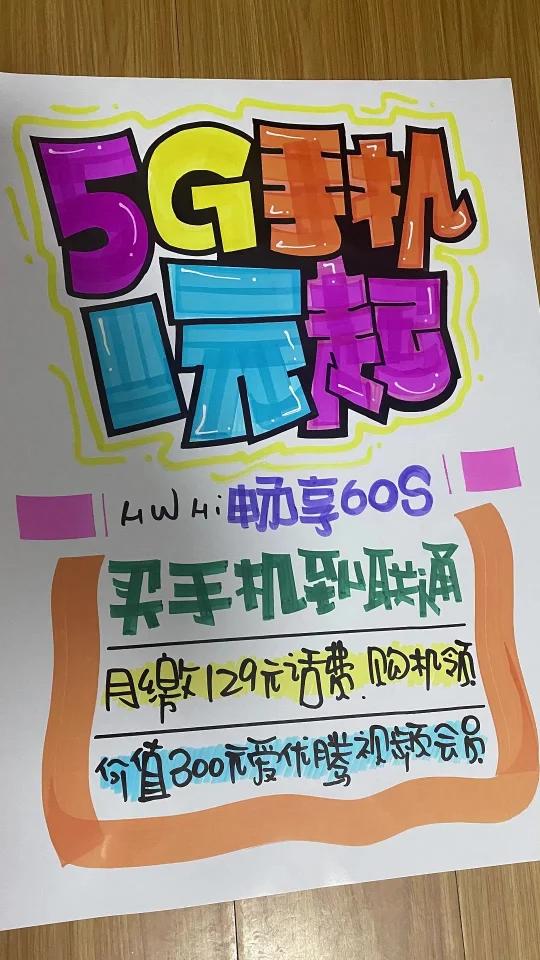 5G手机
1元起
HW Hi畅享60S
买手机到联通
月缴129元话费.购机领
价值300元爱优腾视频会员